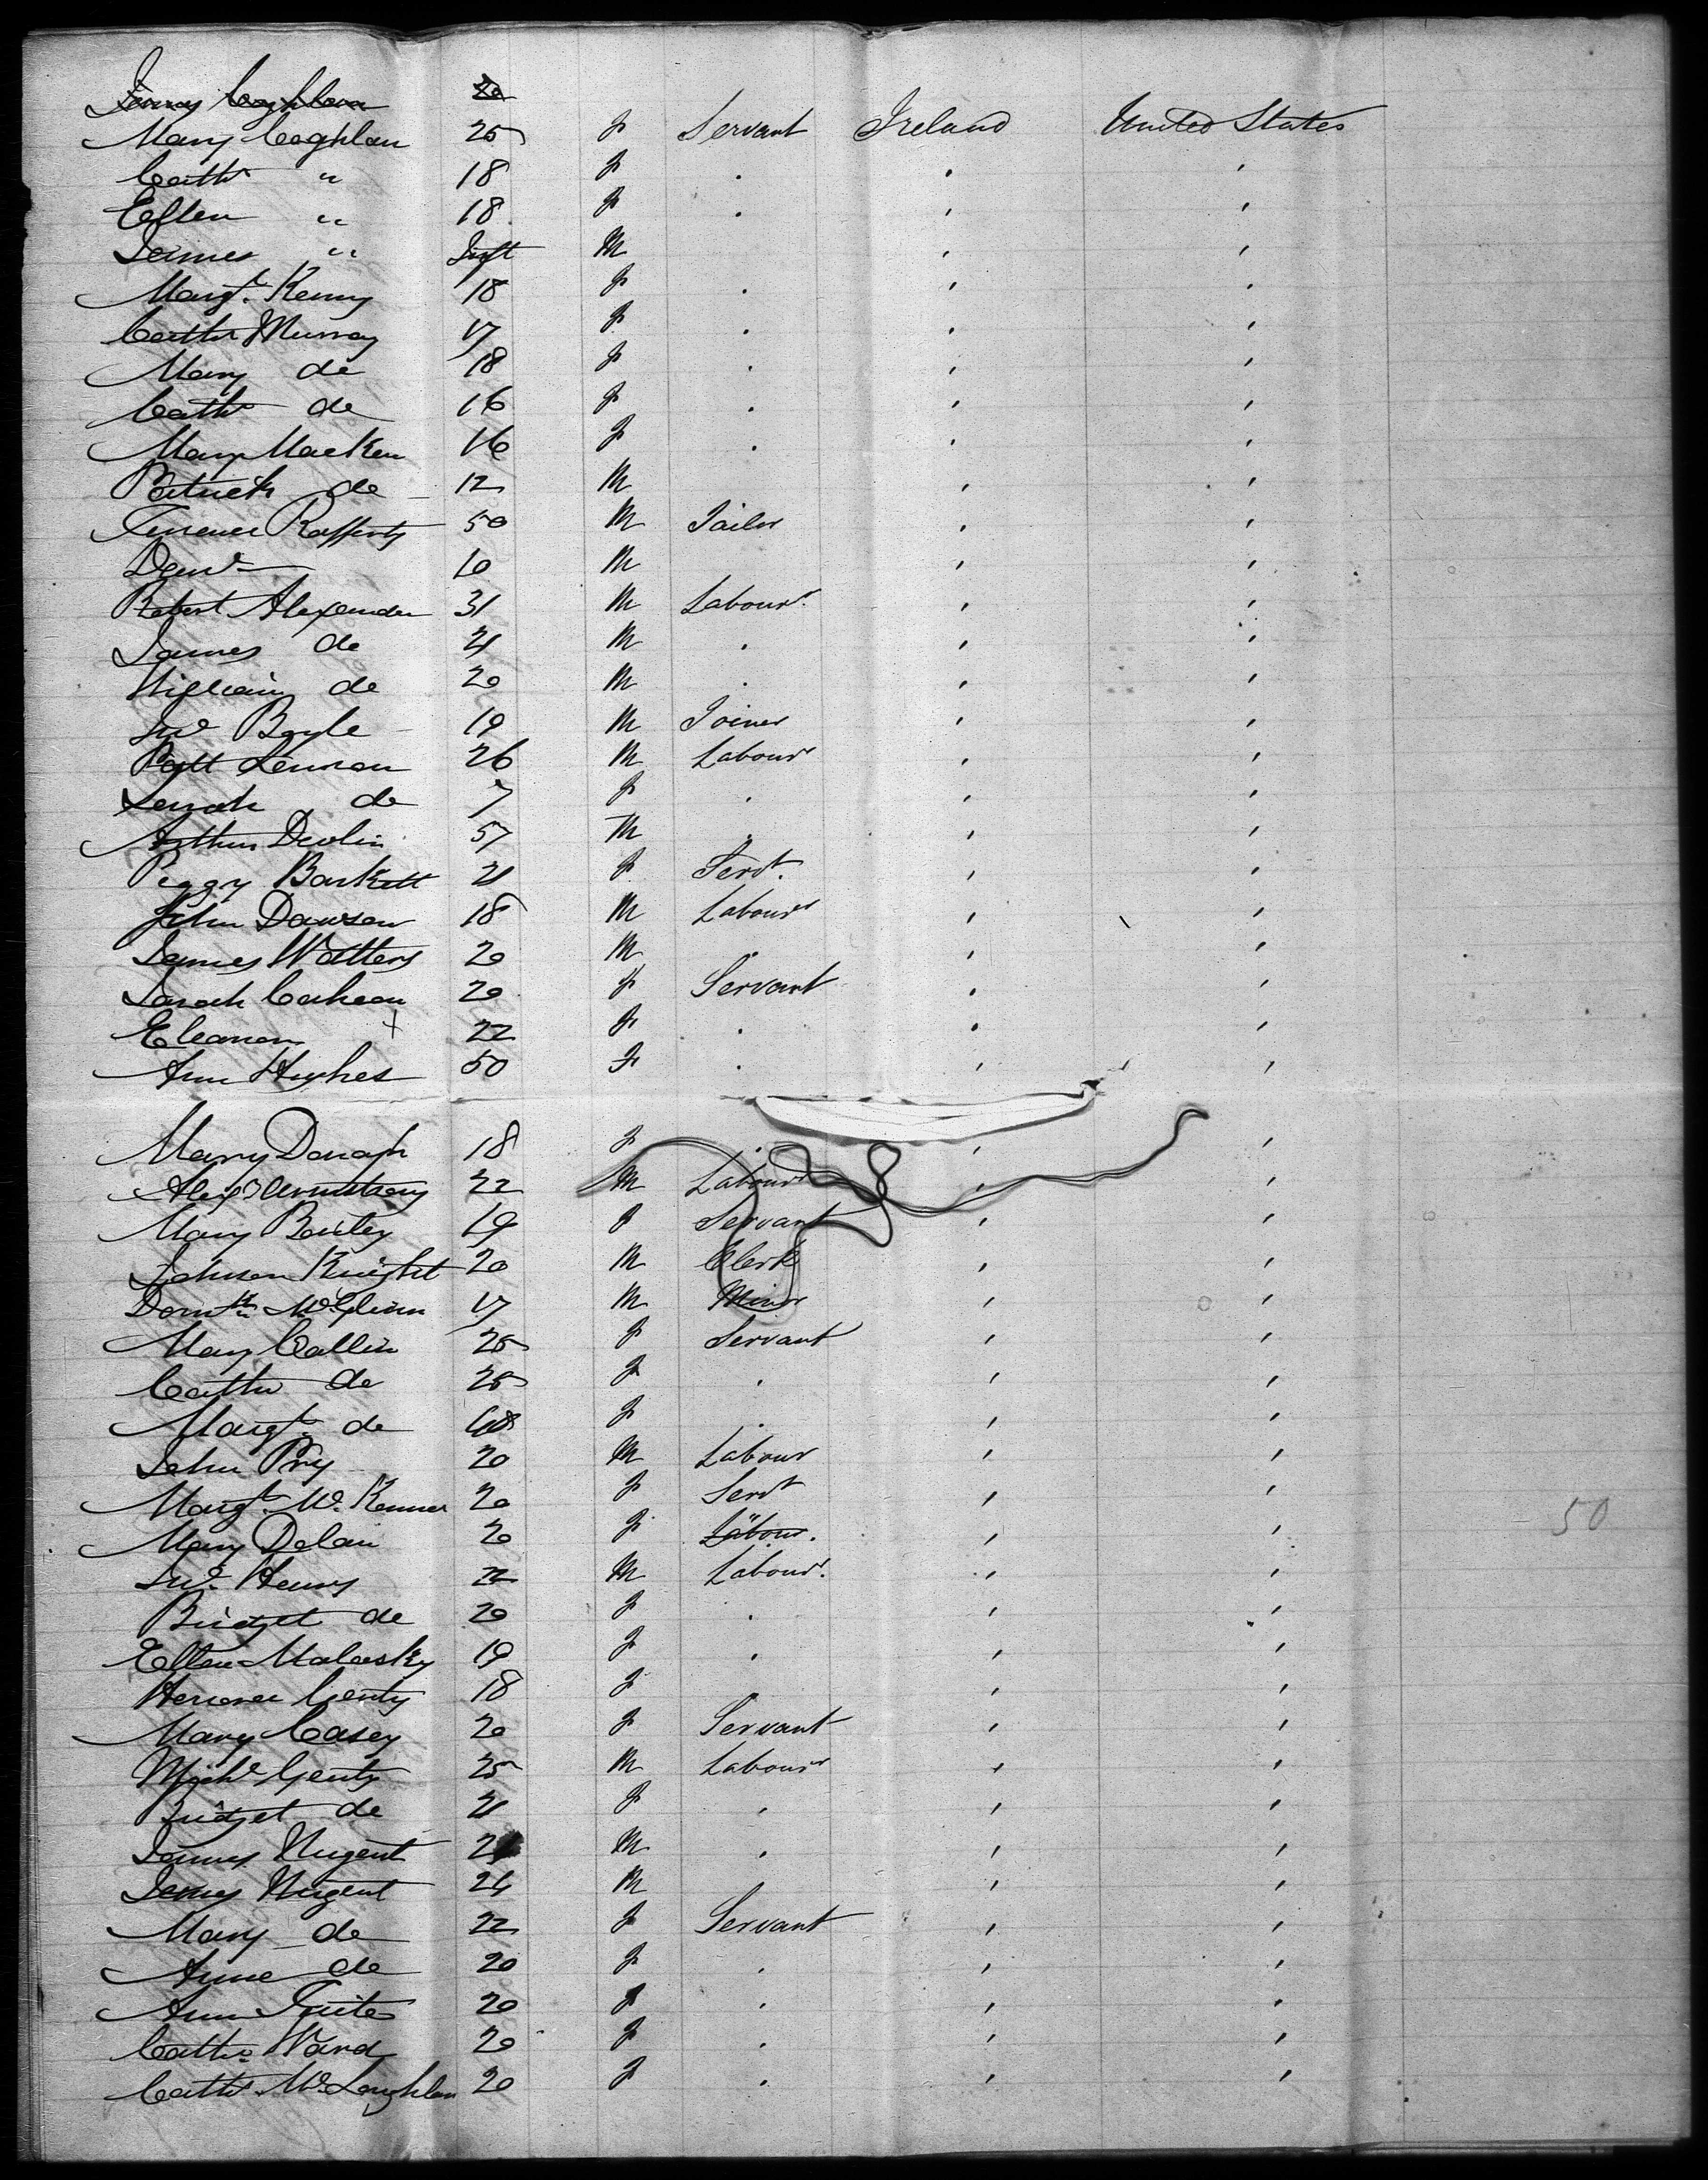 Mary Coghlan 25 F Servant Ireland United States
Cathe " 18 F . . '
Ellen " 18 F . ' '
James " Inft M ' '
Margt. Kenny 18 F . ' '
Cathe Murray 17 F . ' '
Mary do 18 F . ' '
Cathe do 16 F . ' '
Mary Macken 16 F . ' '
Patrick do 12 M ' '
Terrence Rafferty 50 M Tailor ' '
10 M ' '
Robert Alexander 31 M Labourr. ' '
James do 21 M . ' '
William do 20 M . ' '
Jno Boyle 19 M Joiner ' '
Patt Lennon 26 M Labourr ' '
Sarah do 7 F . ' '
Arthur Devlin 57 M " ' '
Peggy Barkett 21 F Servt. ' '
John Dawson 18 M Labourr ' '
James Watters 20 M " ' '
Sarah 20 F Servant . '
Eleanor + 22 F . . '
Ann Hughes 50 F . ' '
Mary Donagh 18 F . ' '
Alexr Armstrong 22 M Labourr ' '
Mary 19 F Servant ' '
Johnson Knight 20 M Clerk ' '
McGlinn 17 M Minor ' '
Mary Callin 25 F Servant ' '
Cathe do 25 F . ' '
Margt. do F . ' '
John Pry 20 M Labour ' '
Margt. McKenna 20 F Servt ' '
Mary Delan 20 F " Labour. ' '
50
Jno. Henry 22 M Labourr. ' '
Bridget do 20 F . ' '
Ellen Malasky 19 F . ' '
Genty 18 F . ' '
Mary Casey 20 F Servant ' '
Michl Genty 25 M Labourr ' '
Bridget do 21 F ' ' '
James Nugent M ' ' '
James Nugent 24 M ' '
Mary do 22 F Servant ' '
Anne do 20 F . ' '
Ann Tuite 20 F . ' '
Cathe Ward 20 F . ' '
Cathe McLoughlan 20 F . ' '